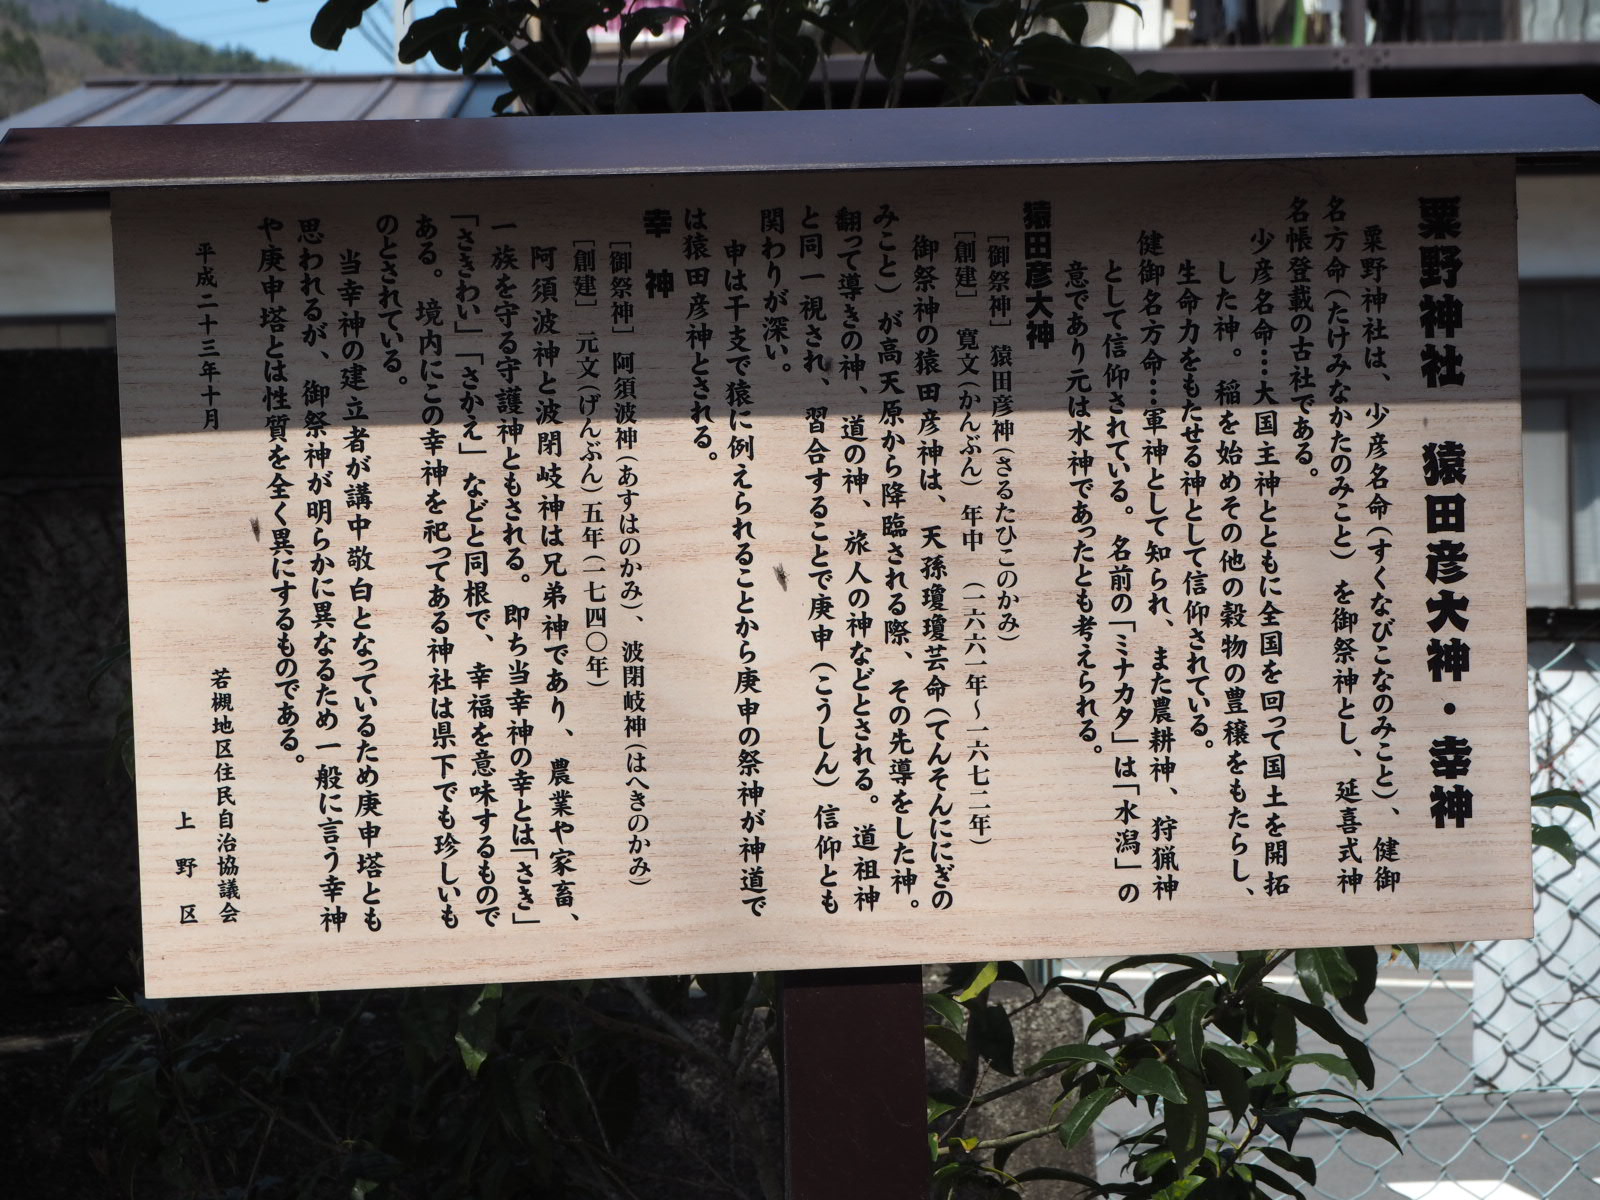 粟野神社　猿田彦大神・幸神
粟野神社は、少彦名命(すくなびこなのみこと)、健御
名方命(たけみなかたのみこと）を御祭神とし、延喜式神
名帳登載の古社である。
少彦名命…大国主神とともに全国を回って国土を開拓
した神。稲を始めその他の穀物の豊穣をもたらし、
生命力をもたせる神として信仰されている。
健御名方命…軍神として知られ、また農耕神、狩猟神
として信仰されている。名前の「ミナカタ」は「水潟」の
意であり元は水神であったとも考えられる。
猿田彦大神
［御祭神］猿田彦神(さるたひこのかみ)
［創建］　寛文(かんぶん）年中　(一六六一年～一六七二年)
御祭神の猿田彦神は、天孫瓊瓊芸命(てんそんににぎの
みこと）が高天原から降臨される際、その先導をした神。
翻って導きの神、道の神、旅人の神などとされる。道祖神
と同一視され、習合することで庚申（こうしん）信仰とも
関わりが深い。
申は干支で猿に例えられることから庚申の祭神が神道で
は猿田彦神とされる。
幸　神
［御祭神］阿須波神(あすはのかみ)、波閉岐神(はへきのかみ)
［創建］　元文(げんぶん)五年(一七四〇年)
阿須波神と波閉岐神は兄弟神であり、農業や家畜、
一族を守る守護神ともされる。即ち当幸神の幸とは「さき」
「さきわい」「さかえ」などと同根で、幸福を意味するもので
ある。境内にこの幸神を祀ってある神社は県下でも珍しいも
のとされている。
当幸神の建立者が講中敬白となっているため庚申塔とも
思われるが、御祭神が明らかに異なるため一般に言う幸神
や庚申塔とは性質を全く異にするものである。
平成二十三年十月
若槻地区住民自治協議会
上野区